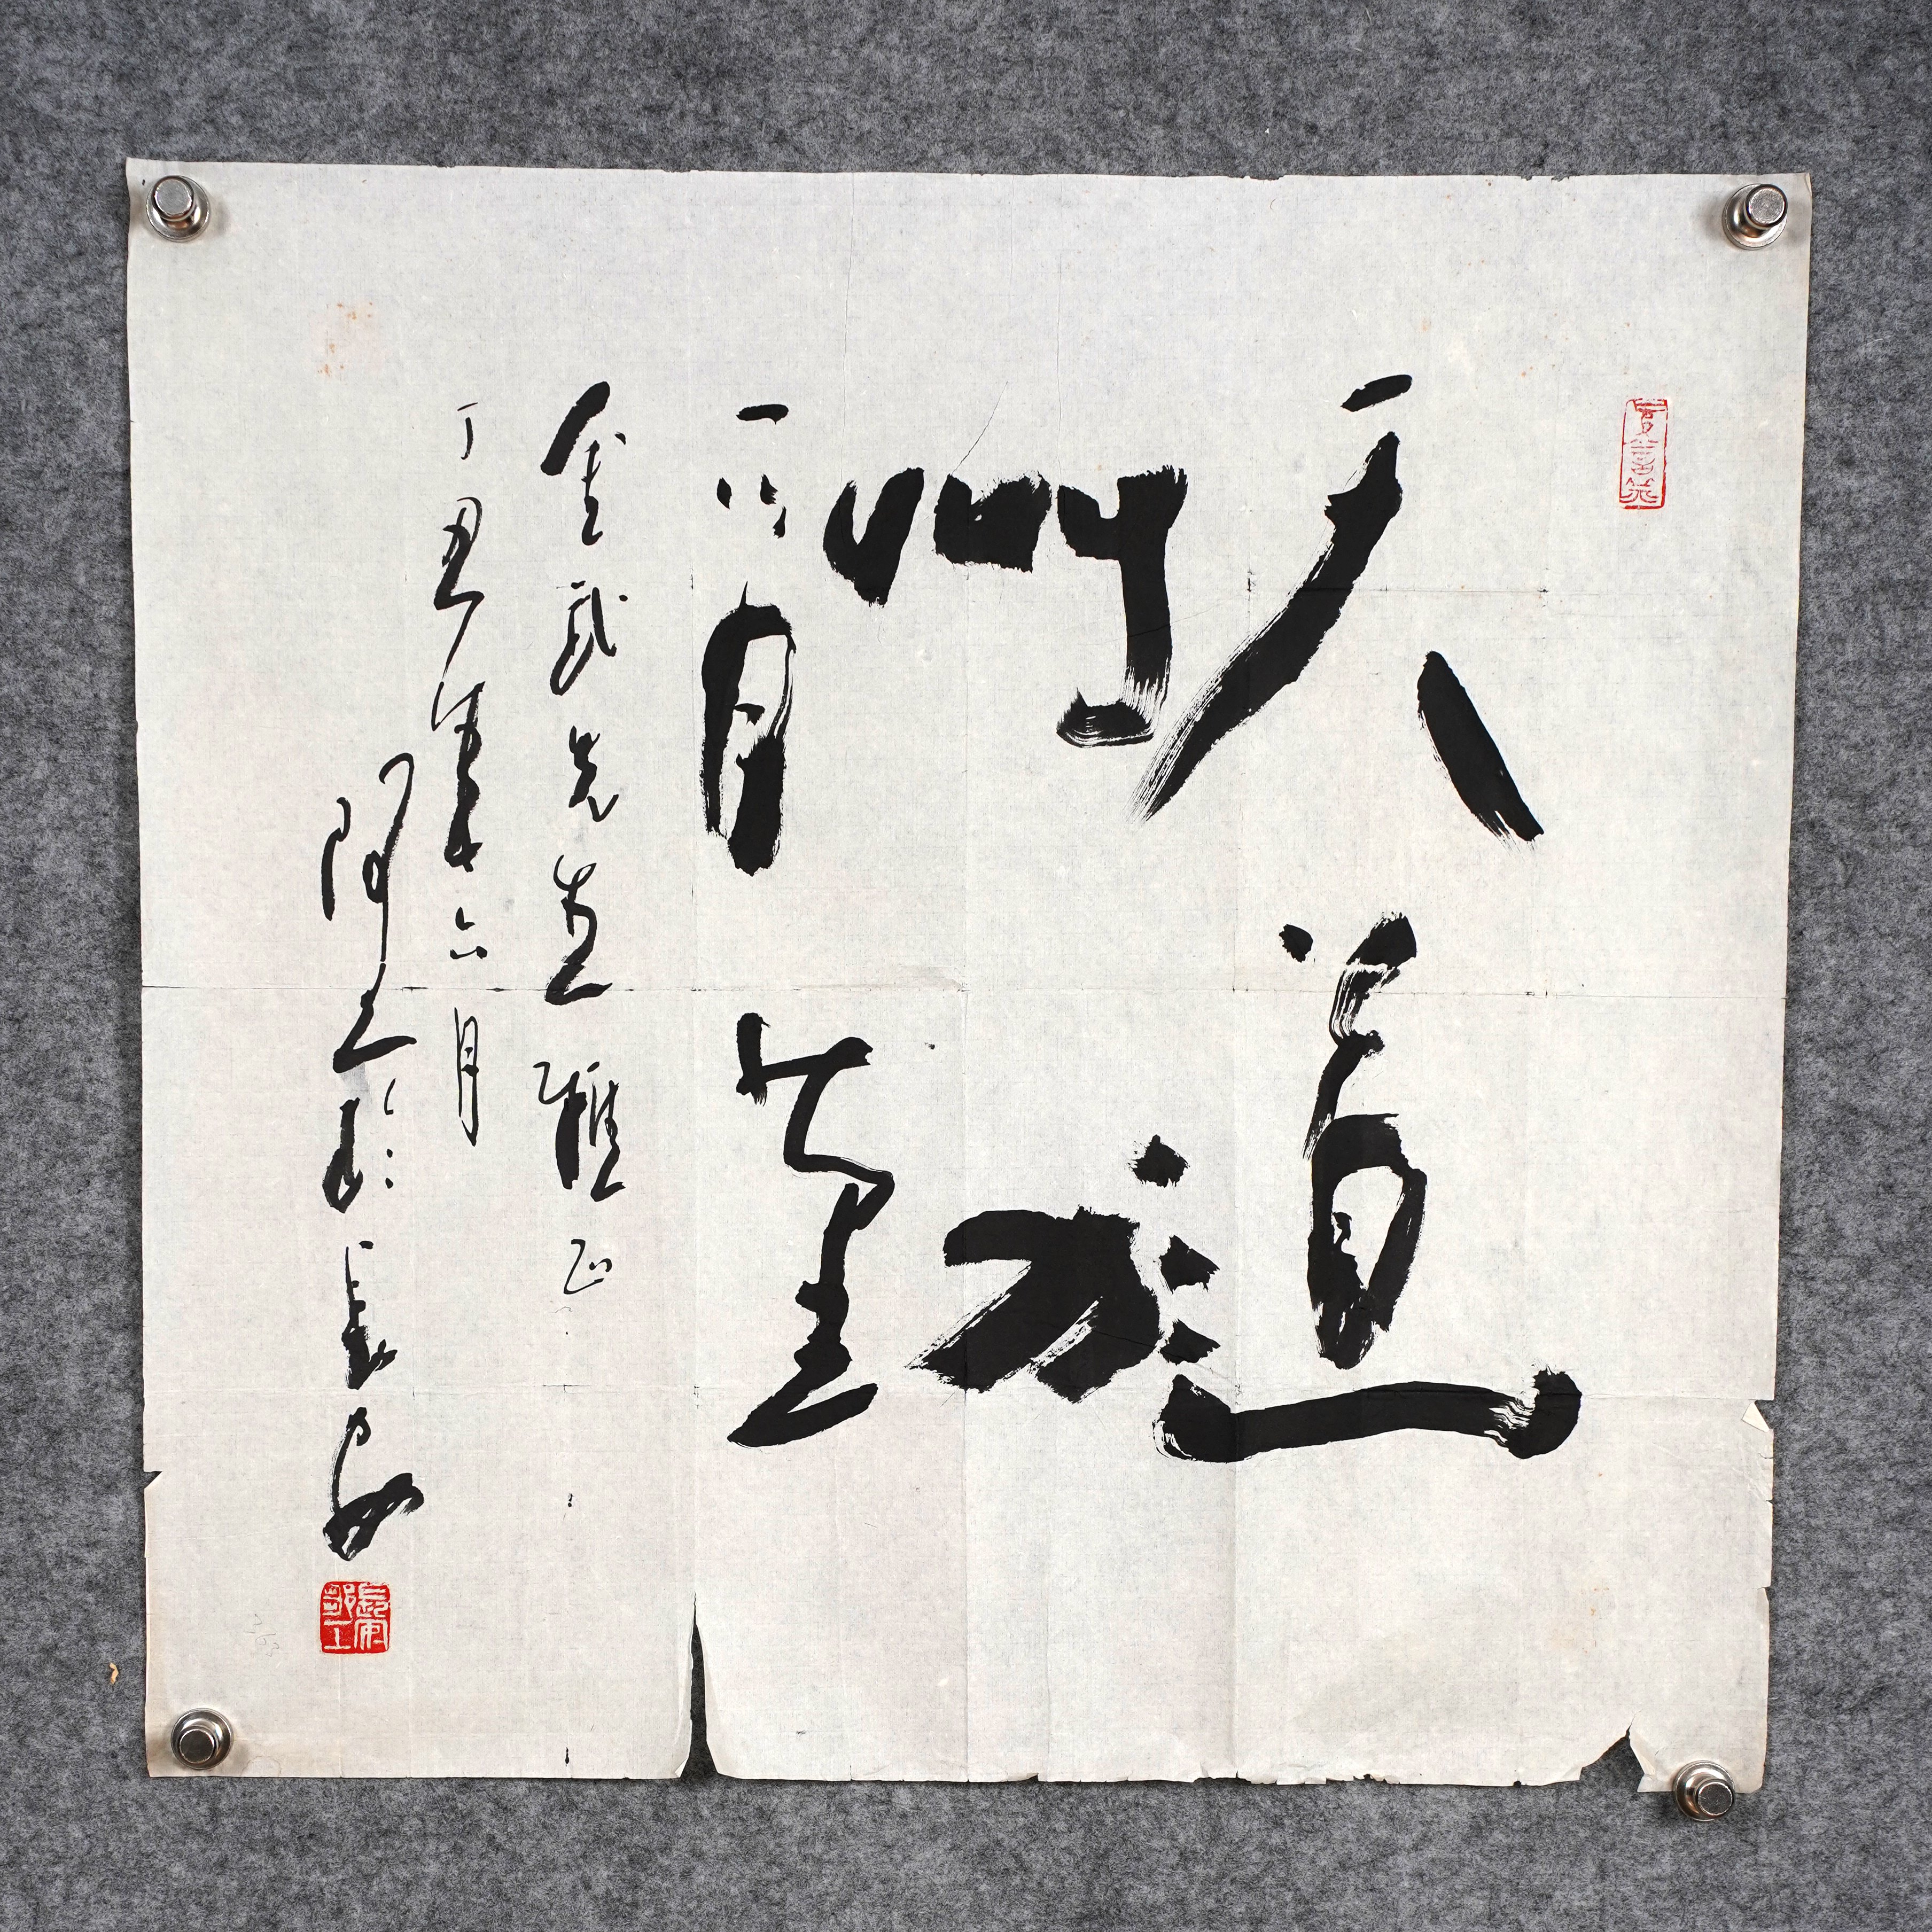 天道
酬勤
金武先生雅正
丁丑年六月
工於長安
長安